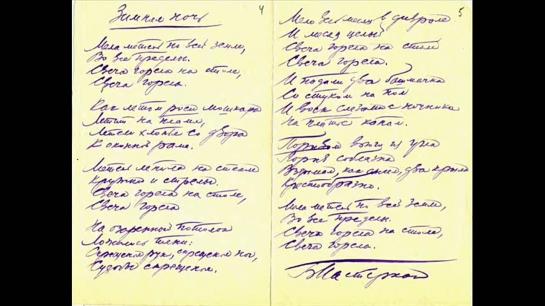 4
Зимняя ночь
Мела метель по всей земле,
Во все пределы.
Свеча горела на столе,
Свеча горела.
Как летом роем мошкара
Летит на пламя,
Летели хлопья со двора
К оконной раме.
Метель лепила на стекле
Кружки и стрелы.
Свеча горела на столе,
Свеча горела
На озаренный потолок
Ложились тени:
Скрещенья рук, скрещенья ног,
Судьбы скрещенья.
5
Мело весь месяц в феврале
И месяц целый
Свеча горела на столе
Свеча горела.
И падали два башмачка
Со стуком на пол
И воск слезами с ночника
На платье капал.
из угла
соблазна
Вздымал, как ангел, два крыла
Крестообразно.
Мела метель по всей земле,
Во все пределы.
Свеча горела на столе,
Свеча горела.
БПастернак